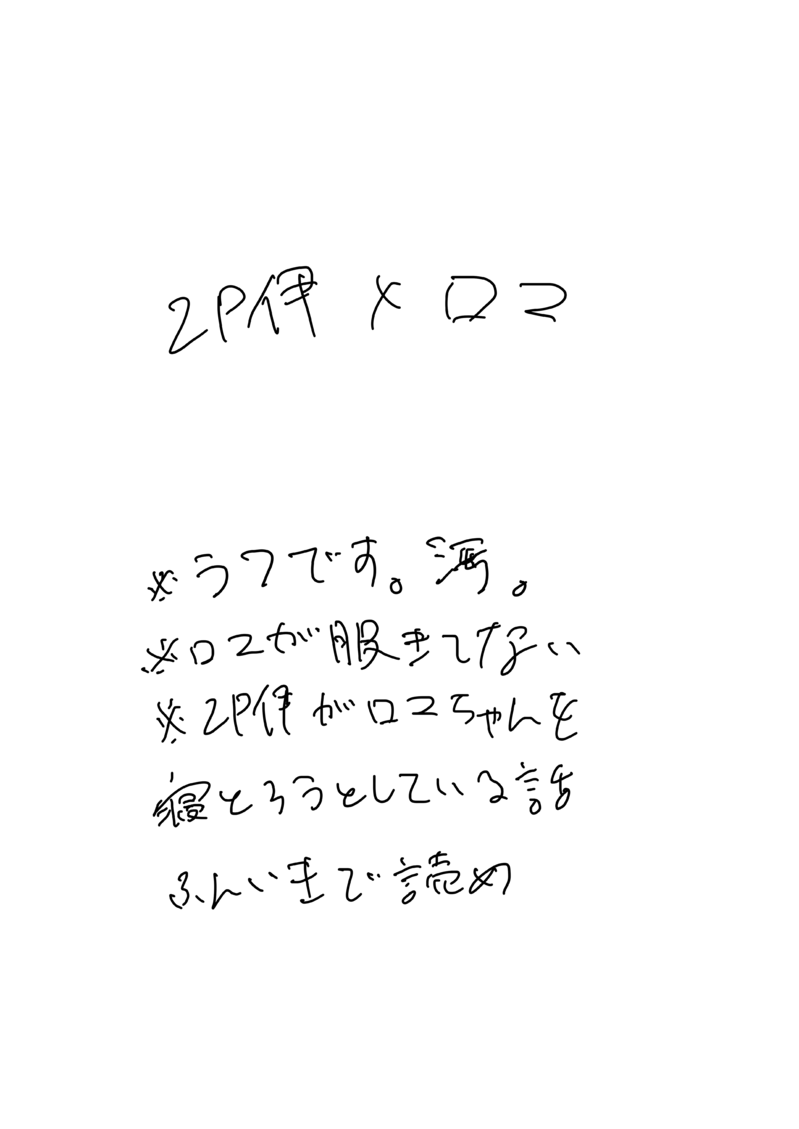 2P伊×ロマ
※ラフです。酒。
※ロマが服きてない
※2P伊がロマちゃんを
寝とろうとしている話
ふんいきで読め